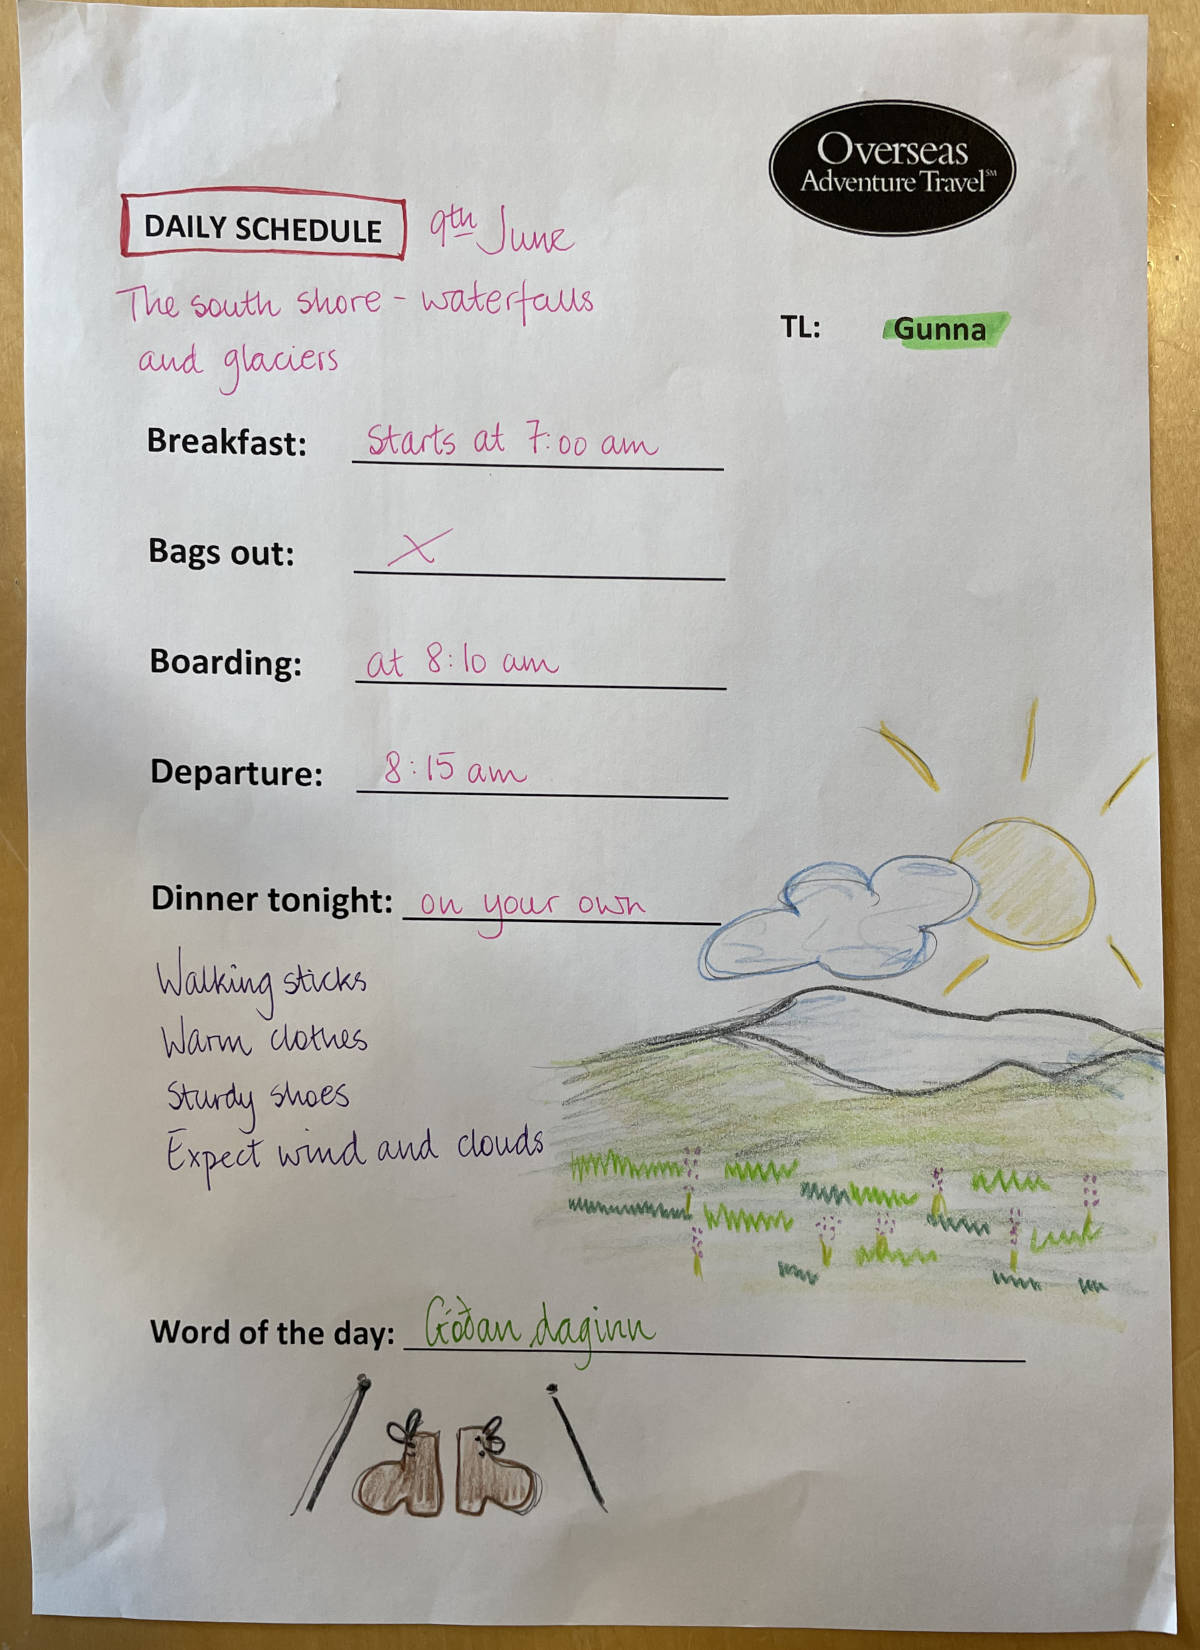 Overseas
Adventure Travel℠
DAILY SCHEDULE 9th June
The south shore - waterfalls
and glaciers
TL: Gunna
Breakfast: starts at 7:00 am
Bags out: X
Boarding: at 8:10 am
Departure: 8:15 am
Dinner tonight: on your own
Walking sticks
Warm clothes
Sturdy shoes
Expect wind and clouds
Word of the day: Góðan daginn